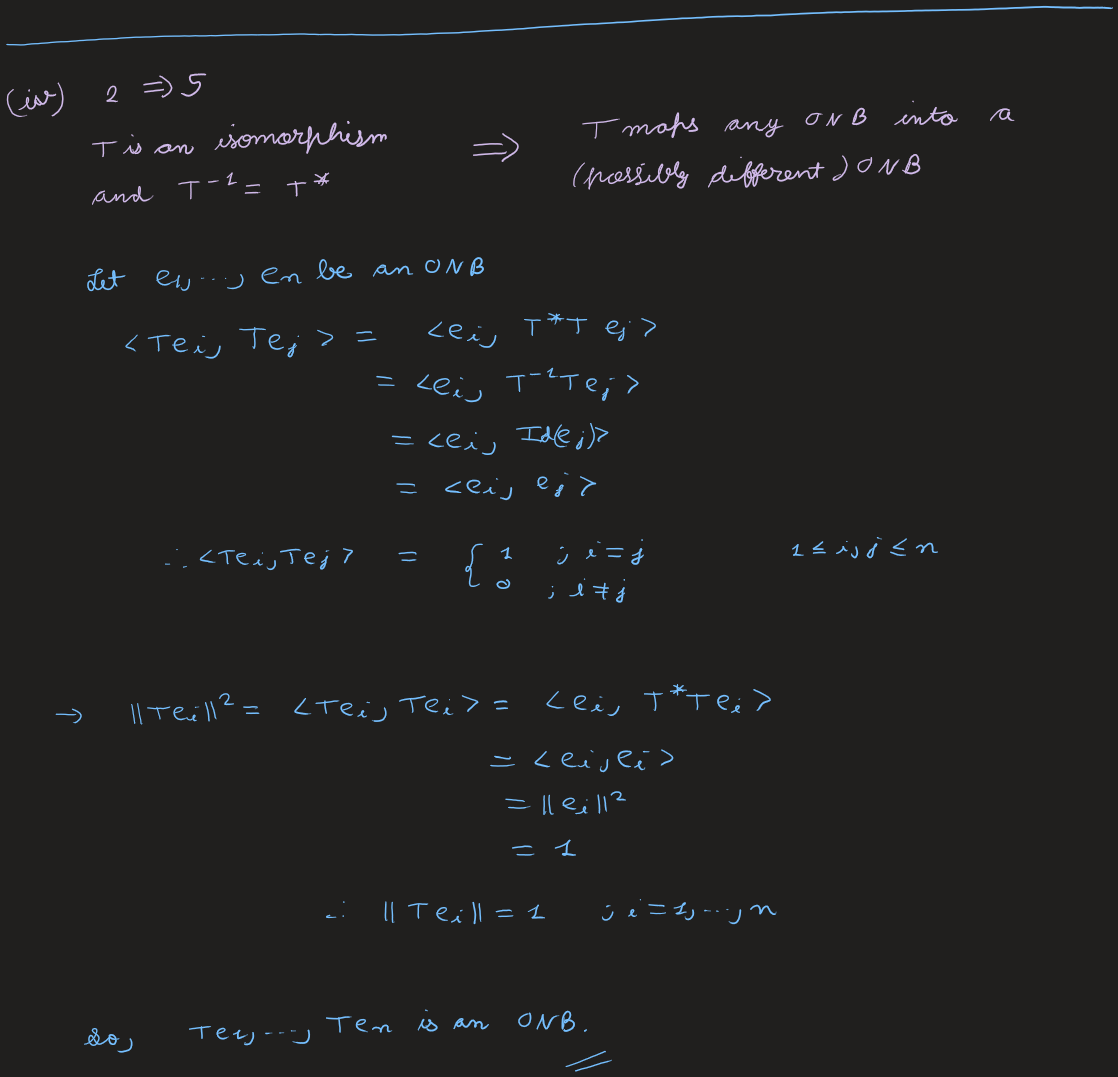 (iv) 2 ⇒ 5
T is an isomorphism ⇒ T maps any ONB into a
and T⁻¹ = T* (possibly different) ONB
Let e₁, ..., eₙ be an ONB
<Teᵢ, Teⱼ> = <eᵢ, T*T eⱼ>
= <eᵢ, T⁻¹T eⱼ>
= <eᵢ, Id(eⱼ)>
= <eᵢ, eⱼ>
∴ <Teᵢ, Teⱼ> = { 1 ; i = j 1 ≤ i, j ≤ n
0 ; i ≠ j
→ ||Teᵢ||² = <Teᵢ, Teᵢ> = <eᵢ, T*Teᵢ>
= <eᵢ, eᵢ>
= ||eᵢ||²
= 1
∴ ||Teᵢ|| = 1 ; i = 1, ..., n
So, Te₁, ..., Teₙ is an ONB.